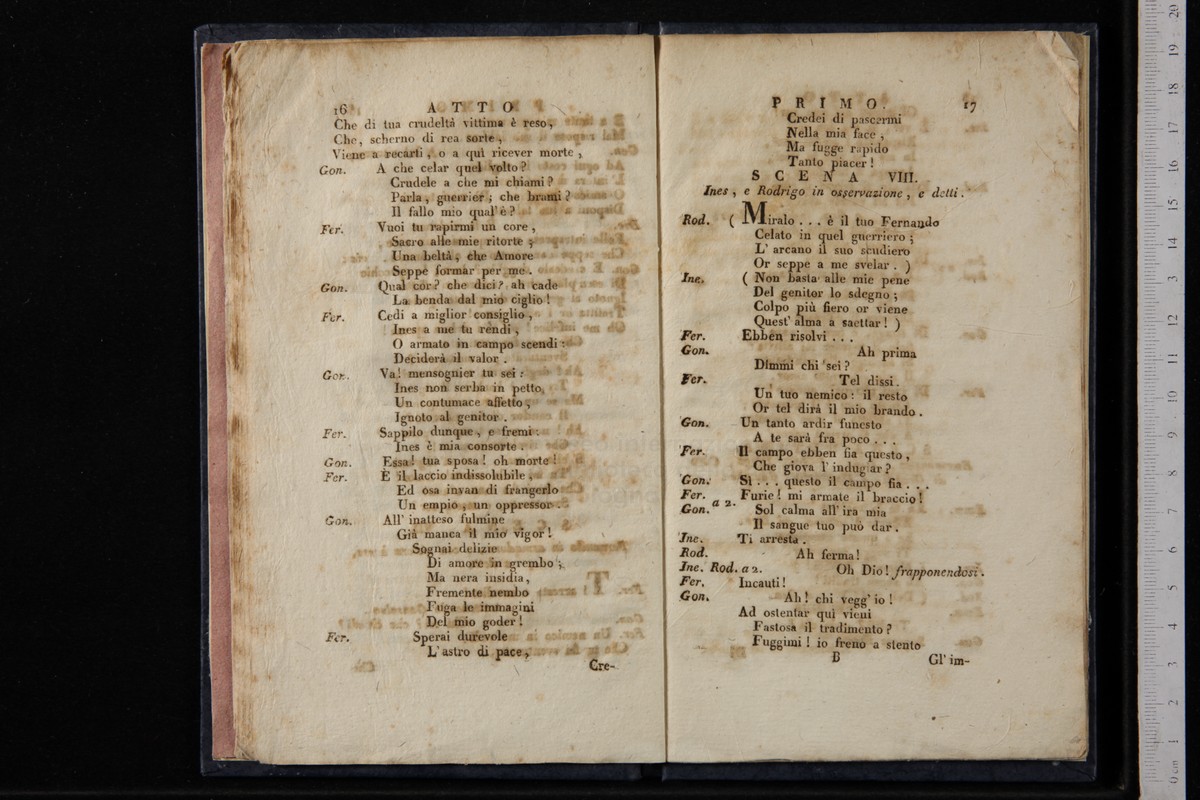 16 ATTO
Che di tua crudeltà vittima è reso,
Che, scherno di rea sorte,
Viene a recarti, o a quì ricever morte,
Gon. A che celar quel volto?
Crudele a che mi chiami?
Parla, guerrier; che brami?
Il fallo mio qual' è?
Fer. Vuoi tu rapirmi un core,
Sacro alle mie ritorte;
Una beltà, che Amore
Seppe formar per me.
Gon. Qual cor? che dici? ah cade
La benda dal mio ciglio!
Fer. Cedi a miglior consiglio,
Ines a me tu rendi,
O armato in campo scendi:
Deciderà il valor.
Gon. Va! mensognier tu sei:
Ines non serba in petto,
Un contumace affetto,
Ignoto al genitor.
Fer. Sappilo dunque, e fremi:
Ines è mia consorte.
Gon. Essa! tua sposa! oh morte!
Fer. È il laccio indissolubile,
Ed osa invan di frangerlo
Un empio, un oppressor.
Gon. All' inatteso fulmine
Già manca il mio vigor!
Sognai delizie
Di amore in grembo;
Ma nera insidia,
Fremente nembo
Fuga le immagini
Del mio goder!
Fer. Sperai durevole
L'astro di pace,
Cre-
PRIMO. 17
Credei di pascermi
Nella mia face,
Ma fugge rapido
Tanto piacer!
SCENA VIII.
Ines, e Rodrigo in osservazione, e detti.
Rod. ( Miralo . . . è il tuo Fernando
Celato in quel guerriero;
L' arcano il suo scudiero
Or seppe a me svelar. )
Ine. ( Non basta alle mie pene
Del genitor lo sdegno;
Colpo più fiero or viene
Quest' alma a saettar! )
Fer. Ebben risolvi . . .
Gon. Ah prima
Dimmi chi sei?
Fer. Tel dissi.
Un tuo nemico: il resto
Or tel dirà il mio brando.
Gon. Un tanto ardir funesto
A te sarà fra poco . . .
Fer. Il campo ebben fia questo,
Che giova l' indugiar?
Gon. Sì . . . questo il campo fia . . .
Fer. Furie! mi armate il braccio!
Gon. a 2. Sol calma all' ira mia
Il sangue tuo può dar.
Ine. Ti arresta.
Rod. Ah ferma!
Ine. Rod. a 2. Oh Dio! frapponendosi.
Fer. Incauti!
Gon. Ah! chi vegg' io!
Ad ostentar quì vieni
Fastosa il tradimento?
Fuggimi! io freno a stento
B Gl' im-
0 cm 1 2 3 4 5 6 7 8 9 10 11 12 13 14 15 16 17 18 19 20